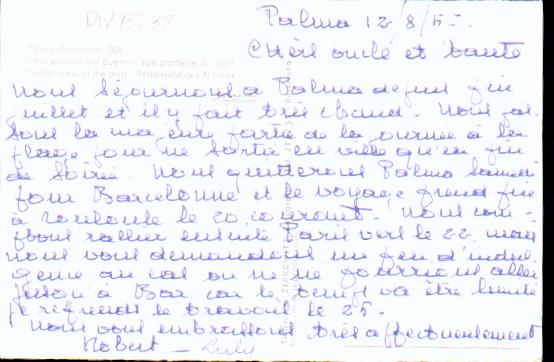 DIV 15238
Palma 12/8/55.
Chers oncle et tante
Palma (Mallorca) 304
Vista parcial del puerto - Vue partielle du port
Partial view of the port - Teilansicht des Hafens
Nous séjournons à Palma depuis fin
juillet et il y fait très chaud. Nous pas-
sons la majeure partie de la journée à la
plage pour ne sortir en ville qu'en fin
de soirée. Nous quitterons Palma samedi
pour Barcelonne et le voyage prend fin
à Toulouse le 20 courant. Nous comp-
tons rallier ensuite Paris vers le 22 mais
nous vous demandons un peu d'indul-
gence au cas où ne pourrions aller
jusqu'à Bar car le temps va être limité
je reprends le travail le 25.
Nous vous embrassons très affectueusement
Robert - Lulu